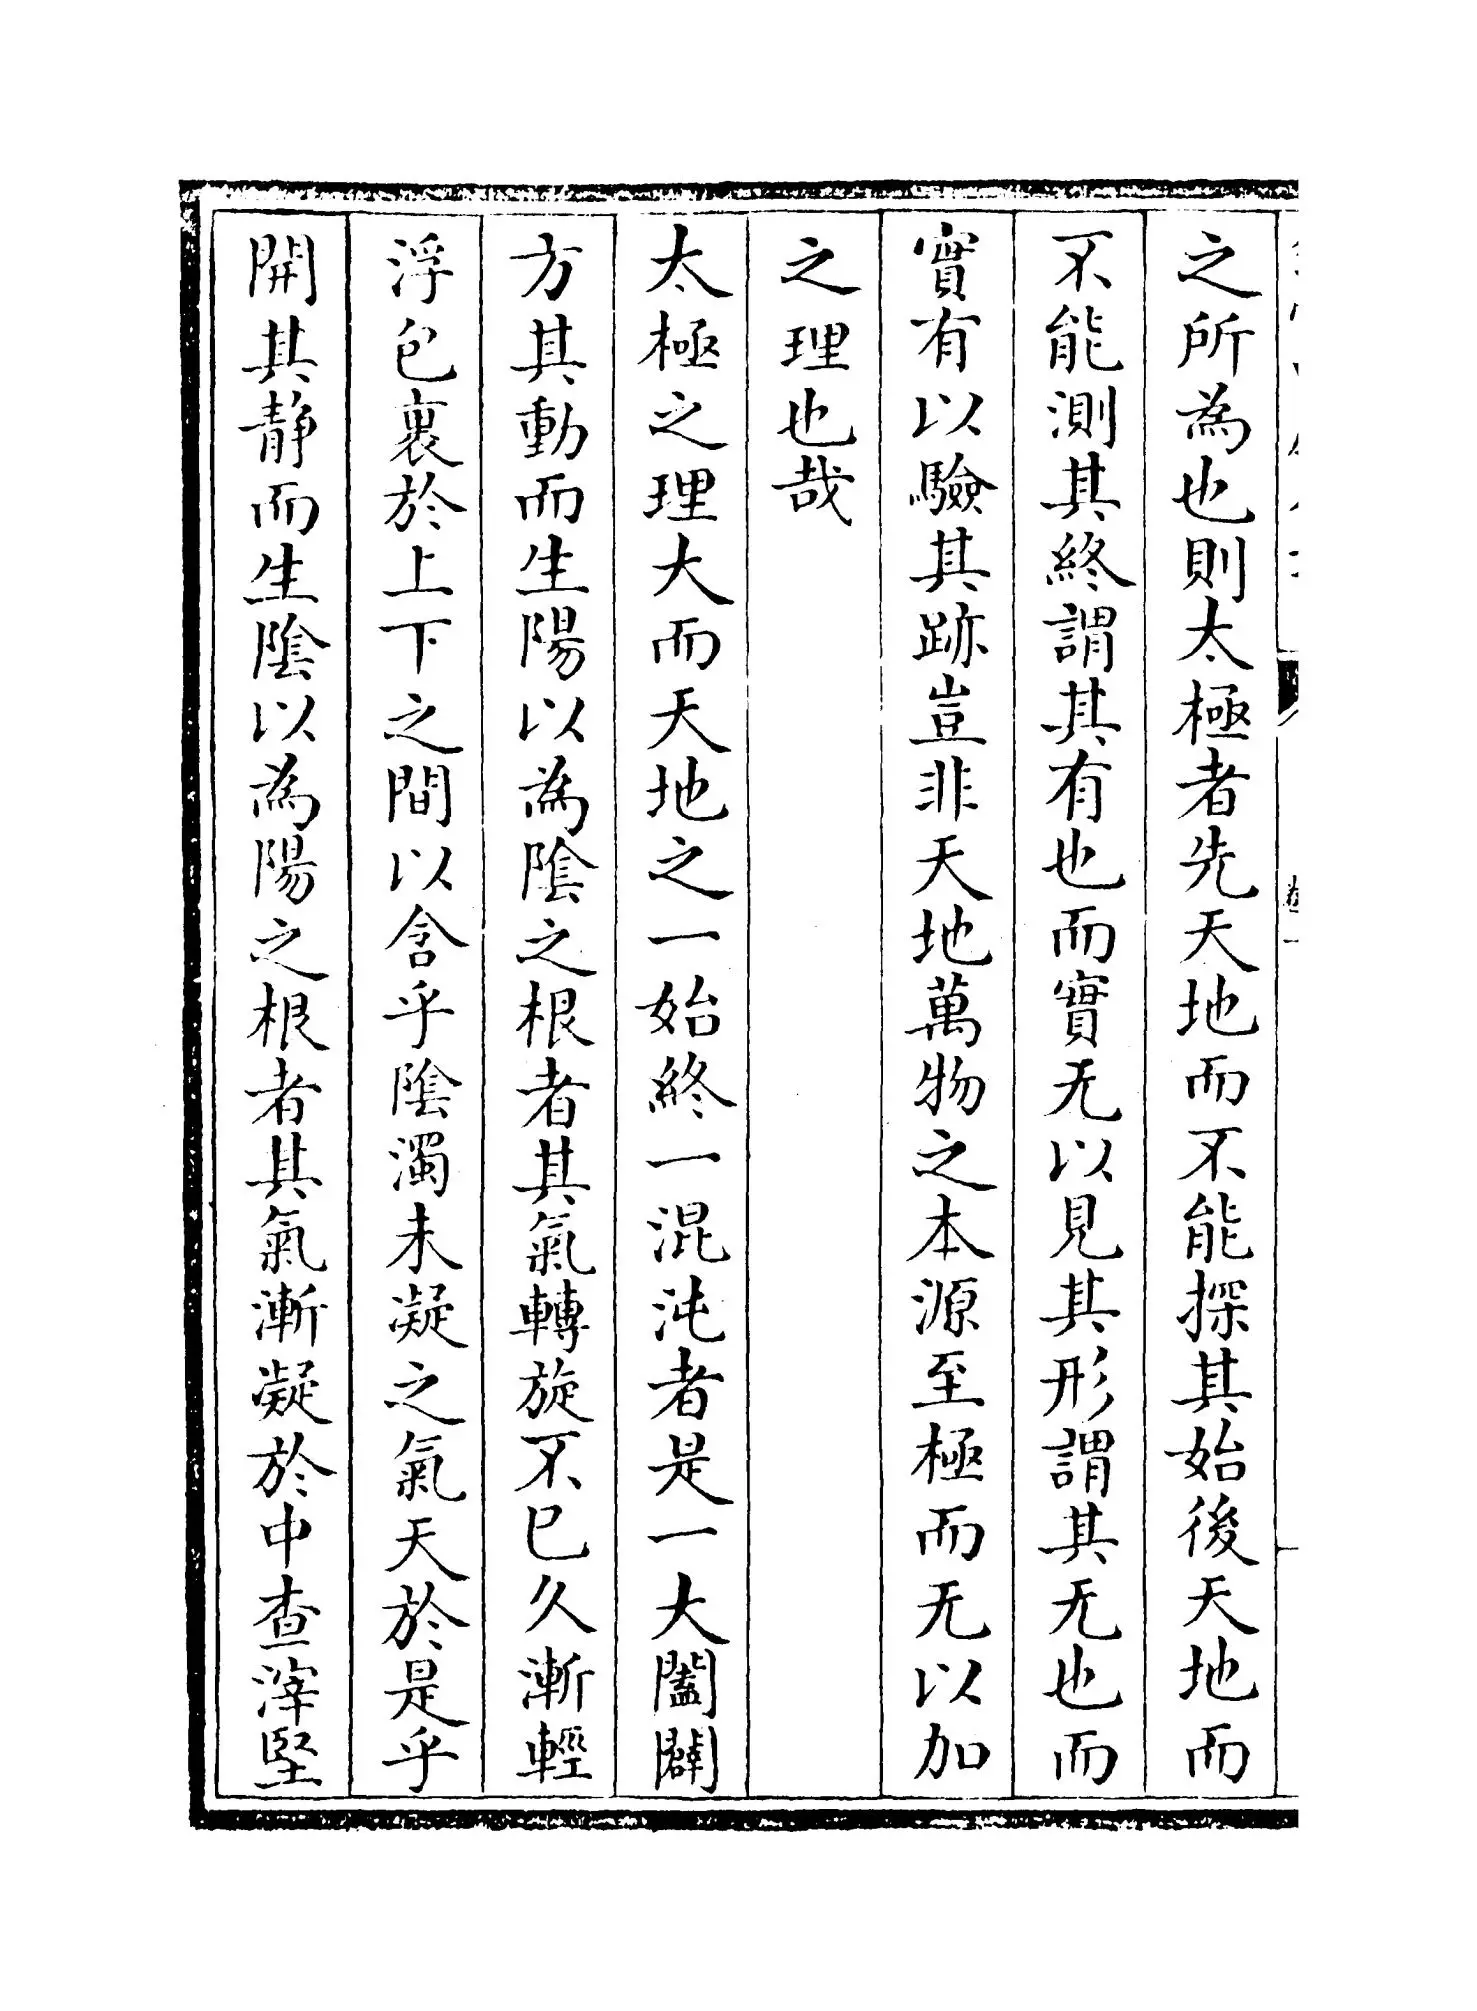 之所為也則太極者先天地而不能探其始後天地而
不能測其終謂其有也而實无以見其形謂其无也而
實有以驗其跡豈非天地萬物之本源至極而无以加
之理也哉
太極之理大而天地之一始終一混沌者是一大闔闢
方其動而生陽以為陰之根者其氣轉旋不已久漸輕
浮包裹於上下之間以含乎陰濁未凝之氣天於是乎
開其静而生陰以為陽之根者其氣漸凝於中查滓堅